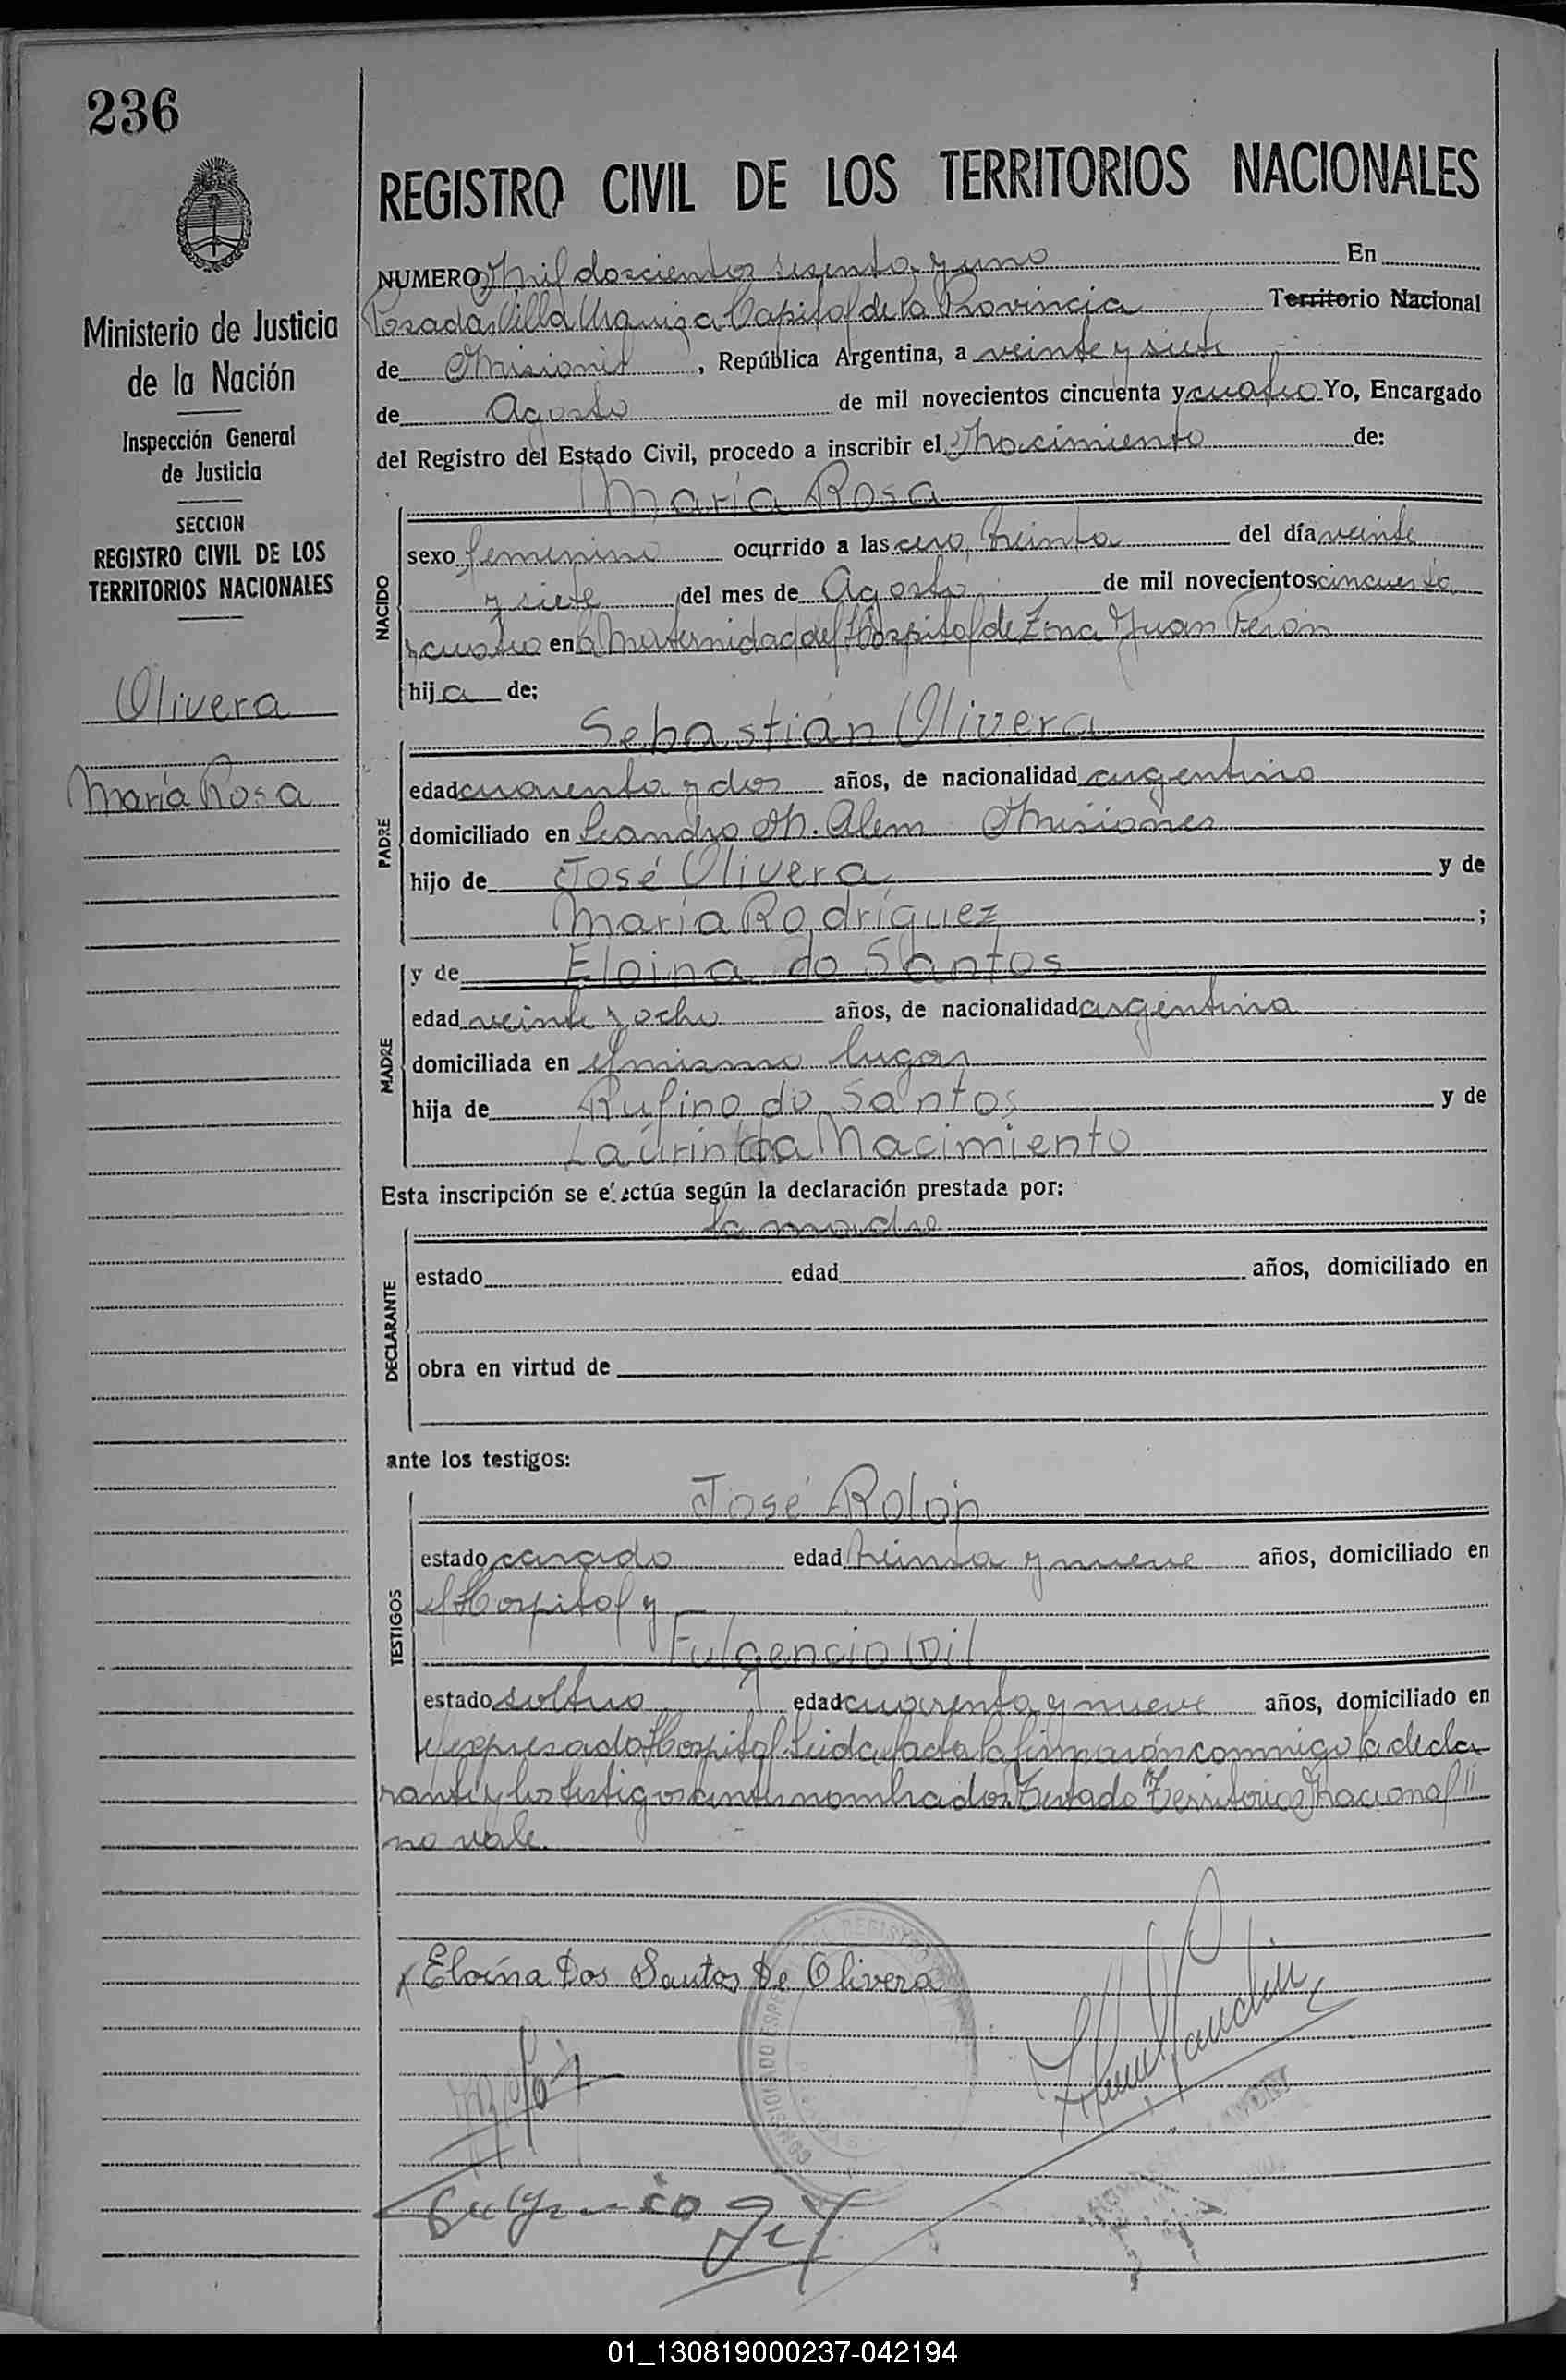 236
REGISTRO CIVIL DE LOS TERRITORIOS NACIONALES
Ministerio de Justicia
de la Nación
Inspección General
de Justicia
SECCION
REGISTRO CIVIL DE LOS
TERRITORIOS NACIONALES
Olivera
María Rosa
NUMERO Mil doscientos sesenta y uno En
Posadas Villa Urquiza Capital de la Provincia Territorio Nacional
de Misiones, República Argentina, a veinte y siete
de Agosto de mil novecientos cincuenta y cuatro Yo, Encargado
del Registro del Estado Civil, procedo a inscribir el Nacimiento de:
María Rosa
NACIDO
sexo femenino ocurrido a las cero, treinta del día veinte
y siete del mes de Agosto de mil novecientos cincuenta
y cuatro en la Maternidad del Hospital de Zona Juan Perón
hija de;
Sebastián Olivera
PADRE
edad cuarenta y dos años, de nacionalidad argentino
domiciliado en Leandro N. Alem Misiones
hijo de José Olivera y de
María Rodríguez ;
y de Eloina do Santos
MADRE
edad veinte y ocho años, de nacionalidad argentina
domiciliada en el mismo lugar
hija de Rufino do Santos y de
Nacimiento
Esta inscripción se efectúa según la declaración prestada por:
la madre
DECLARANTE
estado edad años, domiciliado en
obra en virtud de
ante los testigos:
José Rolón
TESTIGOS
estado casado edad treinta y nueve años, domiciliado en
el Hospital y
Fulgencio Gil
estado soltero edad cuarenta y nueve años, domiciliado en
el expresado Hospital. Leida el acta la firmarón conmigo la decla
rante y los testigos antes nombrados. Testado "Territorio Nacional"
no vale.
Eloína Dos Santos De Olivera
Fulgencio Gil
01_130819000237-042194